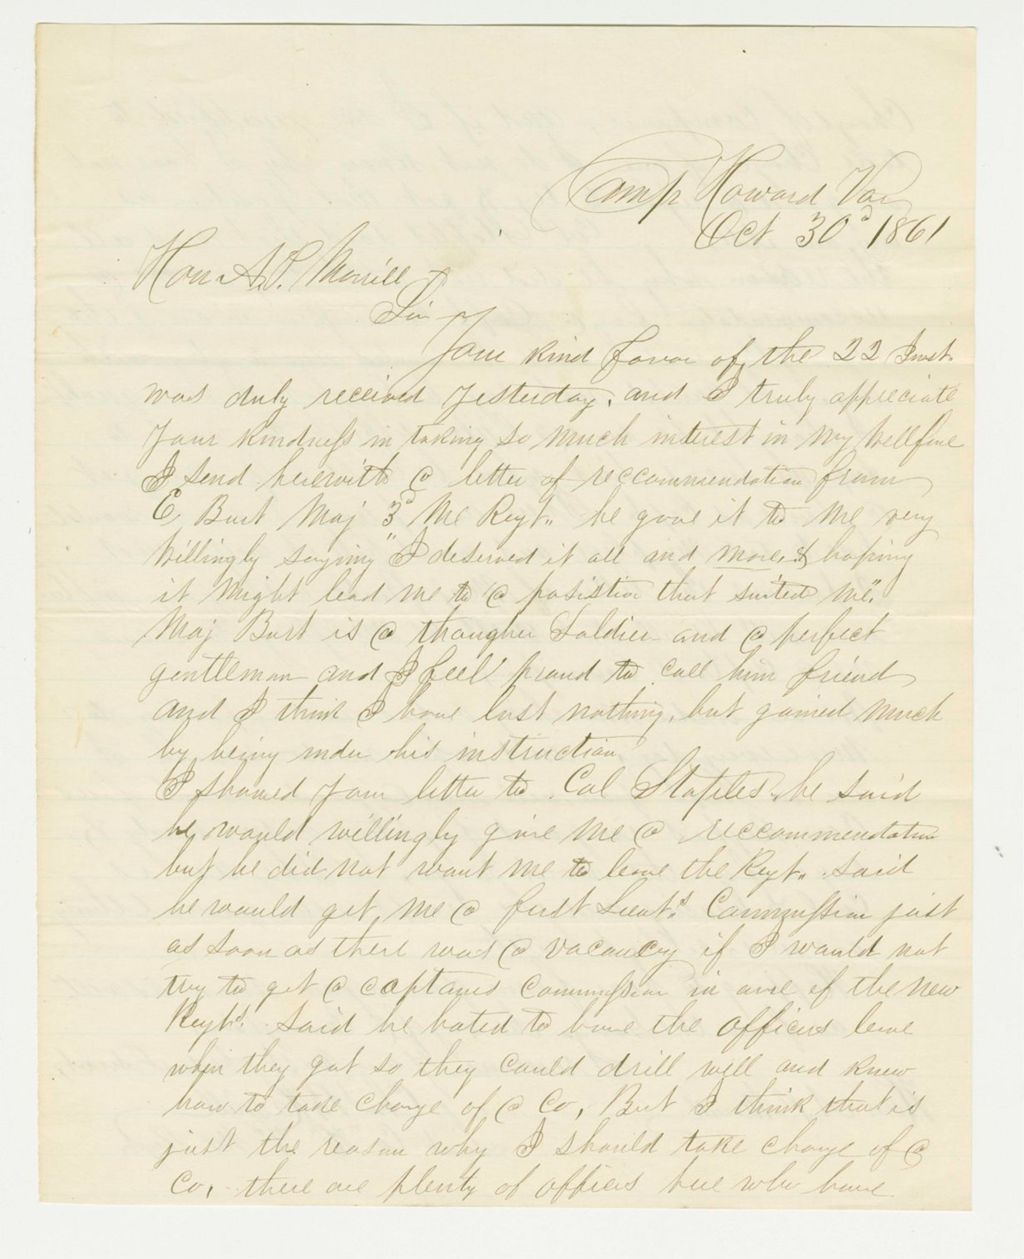 Camp Howard Va
Oct 30d 1861
Hon A. P. Morrill
Sir
Your kind favor of the 22 Inst
was duly received yesterday, and I truly appreciate
your kindness in taking so much interest in my wellfare
I send herewith a letter of reccommendation from
E Burt Maj 3d Me Regt. he gave it to me very
willingly saying "I deserved it all and more, & hoping
it might lead me to a posistion that suited me."
Maj Burt is a thougher Soldier and a perfect
gentleman and I feel proud to call him friend
and I think I have lost nothing, but gained much
by being under his instruction.
I showed your letter to Col Staples, he said
he would willingly give me a reccommendation
but he did not want me to leave the Regt. said
he would get me a first Lieuts Commission just
as soon as there was a vacancy if I would not
try to get a captains Commission in one of the new
Regts. said he hated to have the officers leave
when they got so they could drill well and knew
how to take charge of a Co, But I think that is
just the reason why I should take charge of a
Co, there are plenty of officers here who have